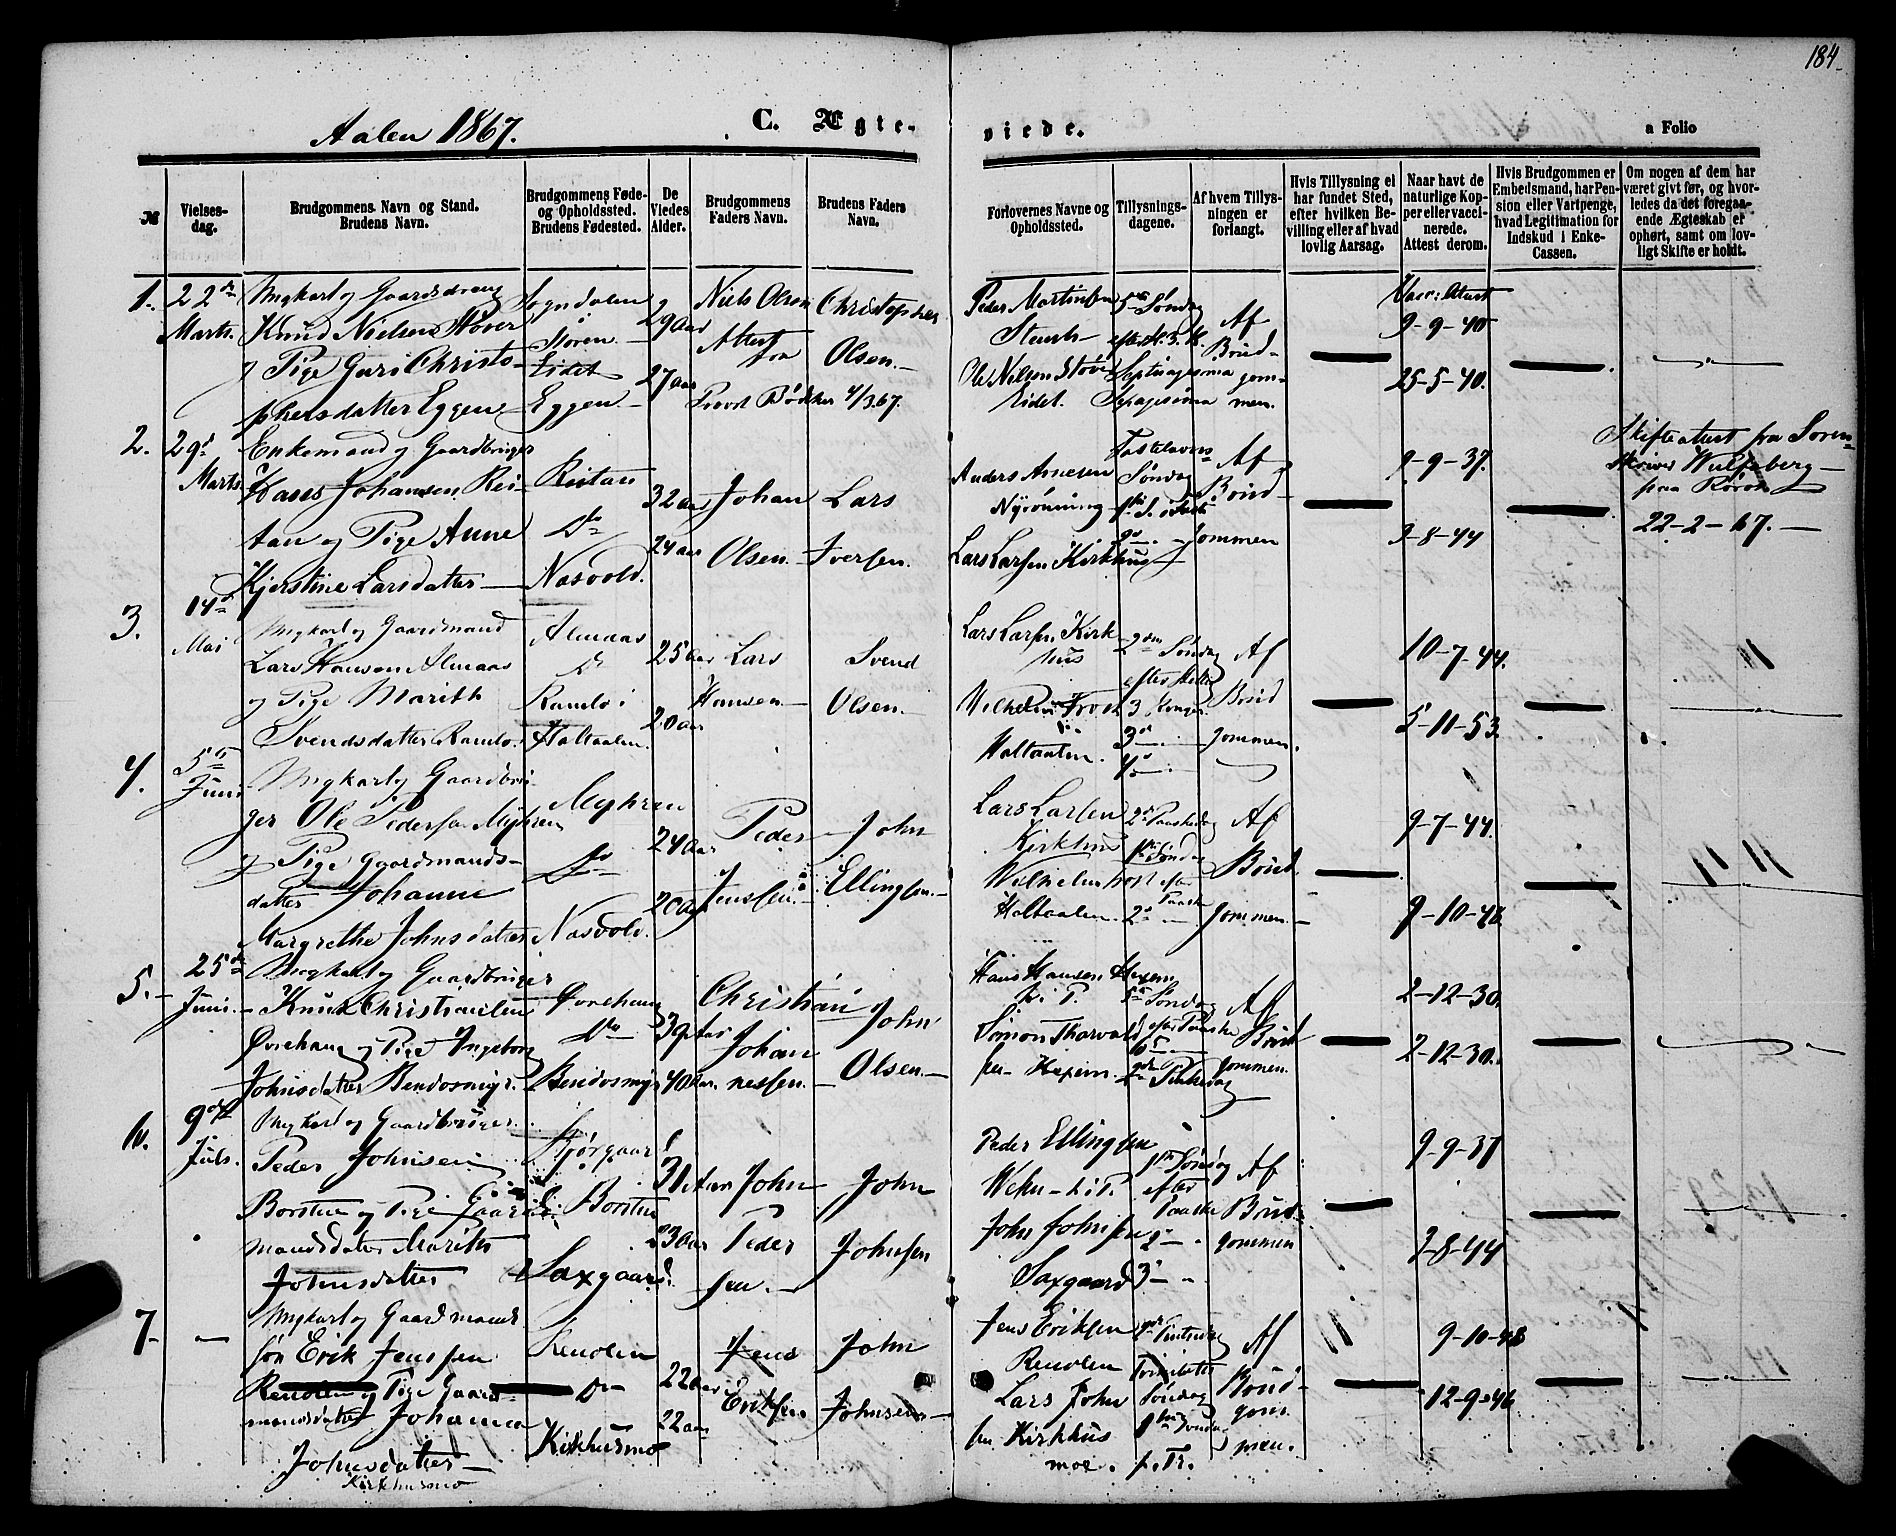 184
Aalen 1867.
C. Ægte-
viede.
a Folio
№
Vielses-
dag.
Brudgommens Navn og Stand.
Brudens Navn.
Brudgommens Føde-
og Opholdssted.
Brudens Fødested.
De
Viedes
Alder.
Brudgommens
Faders Navn.
Brudens Faders
Navn.
Forlovernes Navne og
Opholdssted.
Tillysnings-
dagene.
Af hvem Tillys-
ningen er
forlangt.
Hvis Tillysning ei
har fundet Sted,
efter hvilken Be-
villing eller af hvad
lovlig Aarsag.
Naar havt de
naturlige Kop-
per eller vacci-
nerede.
Attest derom.
Hvis Brudgommen er
Embedsmand, har Pen-
sion eller Vartpenge,
hvad Legitimation for
Indskud i Enke-
Cassen.
Om nogen af dem har
været givt før, og hvor-
ledes da det foregaa-
ende Ægteskab er
ophørt, samt om lov-
ligt Skifte er holdt.
1.
22de
Marts.
Ungkarl og Gaardsdreng
Knud Nielsen Støver
og Pige Guri Christo-
phersdatter Eggen
Sogndalen
Støren.
Eidet
Eggen.
29 aar
27 aar
Niels Olsen
Attest fra
Provst Bødtker 4/3 67.
Christopher
Olsen.
Peder Martinsen
Ole Nielsen Støver
Eidet.
5te Søndag
efter H. 3 K.
Septuagesima
Sexagesima
Af
Brud-
gom-
men.
Vacc: Attest
9-9-40
25-5-40.
2.
29de
Marts.
Enkemand og Gaardbruger
Hans Johansen Rei-
tan og Pige Anne
Kjerstine Larsdatter
Reitan
Do
Nasvold.
32 aar
24 aar
Johan
Olsen.
Lars
Iversen.
Anders Arnesen
Nyrønning
Lars Larsen Kirkhus
Fastelavns
Søndag
1ste S. i Faste
2den
Af
Brud-
gommen
9-9-37.
9-8-44
Skifteattest fra Soren-
skriver Wulfsberg
paa Røros
22-2-67.
3.
14de
Mai
Ungkarl og Gaardmand
Lars Hansen Almaas
og Pige Marith
Svendsdatter Ramlo.
Almaas
Do
Ramlo i
Holtaalen.
25 aar
20 aar
Lars
Hansen
Svend
Olsen.
Lars Larsen Kirk-
hus
Holtaalen.
2den Søndag
efter Hellig
3 Konger
3de
4de
Af
Brud
gommen.
10-7-44.
5-11-53.
4.
5te
Juni
Ungkarl og Gaardbru-
ger Ole Pedersen Myhren
og Pige Gaardmands-
datter Johanne
Margrethe Johnsdatter
Myhren
Do
Nasvold.
24 aar
20 aar
Peder
Jenssen.
John
Ellingsen.
Lars Larsen
Kirkhus
Holtaalen.
2den Paaskedag
1ste Søndag
efter
Paaske
2den
Af
Brud.
gommen.
9-7-44.
9-10-46.
5.
25de
Juni.
Ungkarl og Gaardbruger
Knud Christiansen
Øvrehaug og Pige Ingeborg
Johnsdatter Bendosmyr.
Øvrehaug
Do
Bendosmyr
39 aar
40 aar
Christian
Johan
nessen.
John
Olsen.
Hans Hansen Hexem
Simon Thorvald-
sen Hexem.
5te Søndag
efter Paaske
2den Pintsedag
Af
Brud
gommen.
2-12-30.
2-12-30.
6.
9de
Juli.
Ungkarl og Gaardbruger
Peder Johnsen
Borsten og Pige Gaard-
mandsdatter Marith
Johnsdatter
Borsten
Saxgaard.
31 aar
23 aar
John
Peder
sen.
John
Johnsen
Peder Ellingsen
John Johnsen
Saxgaard
1ste Søndag
efter
Paaske
2
3
Af
Brud-
gommen
9-9-37
9-8-44
7.
Ungkarl og Gaardmands
søn Erik Jenssen
Renolen og Pige Gaard-
mandsdatter Johanna
Johnsdatter
Kirkhusmo
Renolen
Do
Kirkhusmo
22 aar
22 aar
Jens
Eriksen
John
Johnsen
Jens Eriksen
Renolen
Lars John
sen Kirkhus
moe.
2den Pintsedag
Trinitatis
Søndag
1ste Søndag
p. Tr.
Af
Brud-
gom-
men.
9-10-48
12-9-46